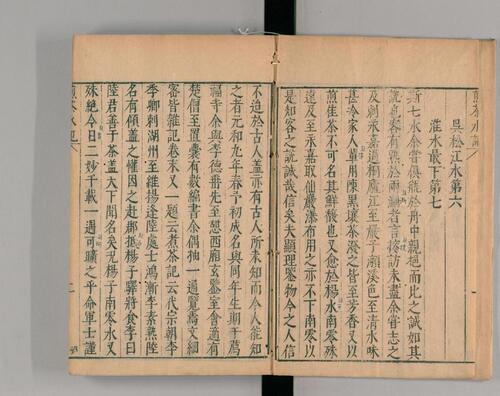 吳松江水第六
淮水最下第七
斯七水余嘗俱瓶於舟中親挹而比之誠如其
說也客有熟於兩浙者言搜訪未盡余嘗志之
及刺永嘉過桐廬江至嚴子瀨溪色至清水味
甚冷家人輩用陳黑壞茶潑之皆至芳香又以
煎佳茶不可名其鮮馥也又愈於揚子南零殊
遠及至永嘉取仙巖瀑布用之亦不下南零以
是知客之說誠哉信矣夫顯理鑒物今之人信
不迨於古人蓋亦有古人所未知而今人能知
之者元和九年春予初成名與同年生期于薦
福寺余與李德垂先至憩西廂玄鑒室會適有
楚僧至置囊有數編書余偶抽一通覽焉文細
密皆雜記卷末又一題云煮茶記云代宗朝李
季卿刺湖州至維揚逢陸處士鴻漸李素熟陸
名有傾蓋之懽因之赴郡抵楊子驛將食李曰
陸君善于茶蓋天下聞名矣況楊子南零水又
殊絕今日二妙千載一遇可曠之乎命軍士謹
煎茶水記